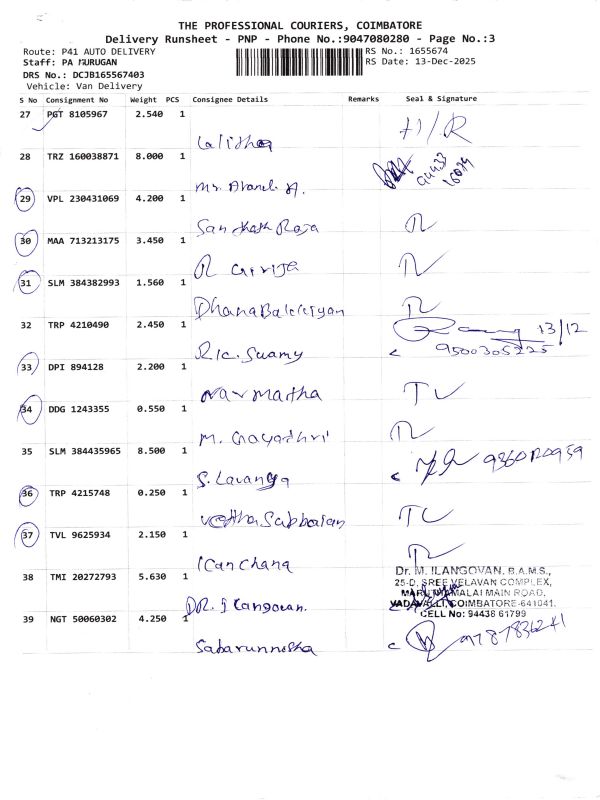 THE PROFESSIONAL COURIERS, COIMBATORE
Delivery Runsheet - PNP - Phone No.:9047080280 - Page No.:3
Route: P41 AUTO DELIVERY
Staff: PA MURUGAN
DRS No.: DCJB165567403
Vehicle: Van Delivery
RS No.: 1655674
RS Date: 13-Dec-2025
S No Consignment No Weight PCS Consignee Details Remarks Seal & Signature
27 PGT 8105967 2.540 1
Lalitha H/R
28 TRZ 160038871 8.000 1
Mr. A. 94433 16079
29 VPL 230431069 4.200 1
Santhosh Raja
30 MAA 713213175 3.450 1
R Girija
31 SLM 384382993 1.560 1
32 TRP 4210490 2.450 1
13/12
Swamy 9500305225
33 DPI 894128 2.200 1
34 DDG 1243355 0.550 1
M. Gayathri
35 SLM 384435965 8.500 1
S. Lavanya
36 TRP 4215748 0.250 1
37 TVL 9625934 2.150 1
Kanchana
38 TMI 20272793 5.630 1
Dr. M. ILANGOVAN, B.A.M.S.,
25-D, SREE VELAVAN COMPLEX,
MARUTHAMALAI MAIN ROAD,
VADAVALLI, COIMBATORE-641041.
CELL No: 94438 61799
DR. Ilangovan.
39 NGT 50060302 4.250 1
Sabarunnisha